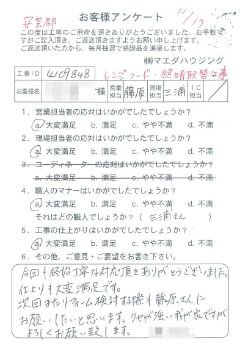 お客様アンケート
この度は工事のご用命を頂きありがとうございました。お手数で
すがご記入頂き、ご返送頂きますようお願い申し上げます。
ご返送頂いた方から、毎月抽選で粗品進呈を致します。
㈱マエダハウジング
工事ID 4109848 レンジフード・照明取替工事
お客様名 様 営業担当 藤原 現場担当 三浦 IC
1. 営業担当者の応対はいかがでしたでしょうか?
a. 大変満足 b. 満足 c. やや不満 d. 不満
2. 現場担当者の応対はいかがでしたでしょうか?
a. 大変満足 b. 満足 c. やや不満 d. 不満
3. コーディネーターの応対はいかがでしたでしょうか?
a. 大変満足 b. 満足 c. やや不満 d. 不満
4. 職人のマナーはいかがでしたでしょうか?
a. 大変満足 b. 満足 c. やや不満 d. 不満
それはどの職人でしょうか?( 三浦さん )
5. 工事の仕上がりはいかがでしたでしょうか?
a. 大変満足 b. 満足 c. やや不満 d. 不満
6. その他、ご意見・ご要望をお書き下さい。
今回も終始丁寧な対応頂きありがとうございました。
仕上りも大変満足です。
次回またリフォーム検討する際も藤原さんに
お願いしたいと思います。クセが強い我が家ですが
よろしくお願い致します。